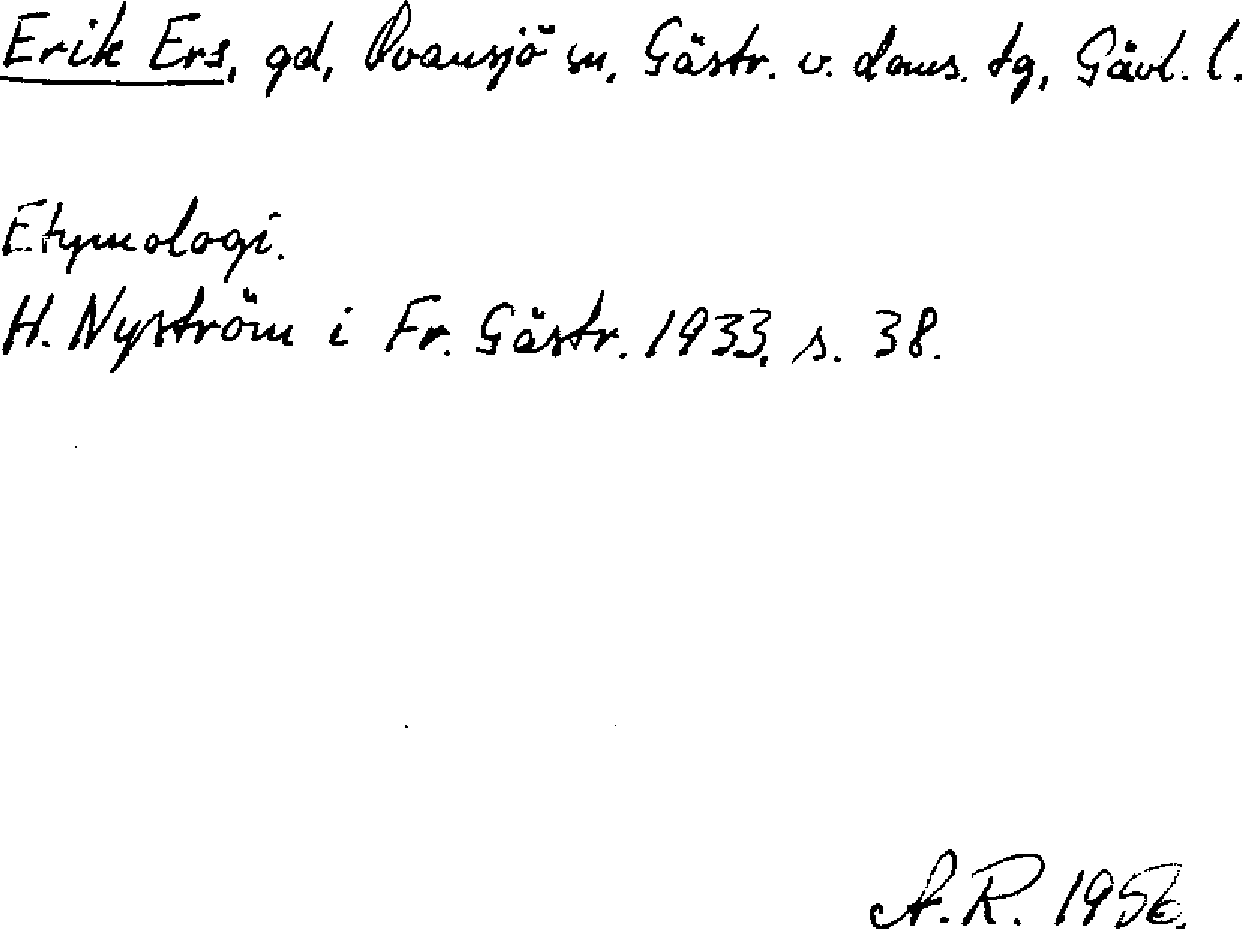 Erik Ers, gd, Ovansjö sn, Gästr. v. doms. tg, Gävl. l.
Etymologi.
H. Nyström i Fr. Gästr. 1933, s. 38.
A.R. 1956.